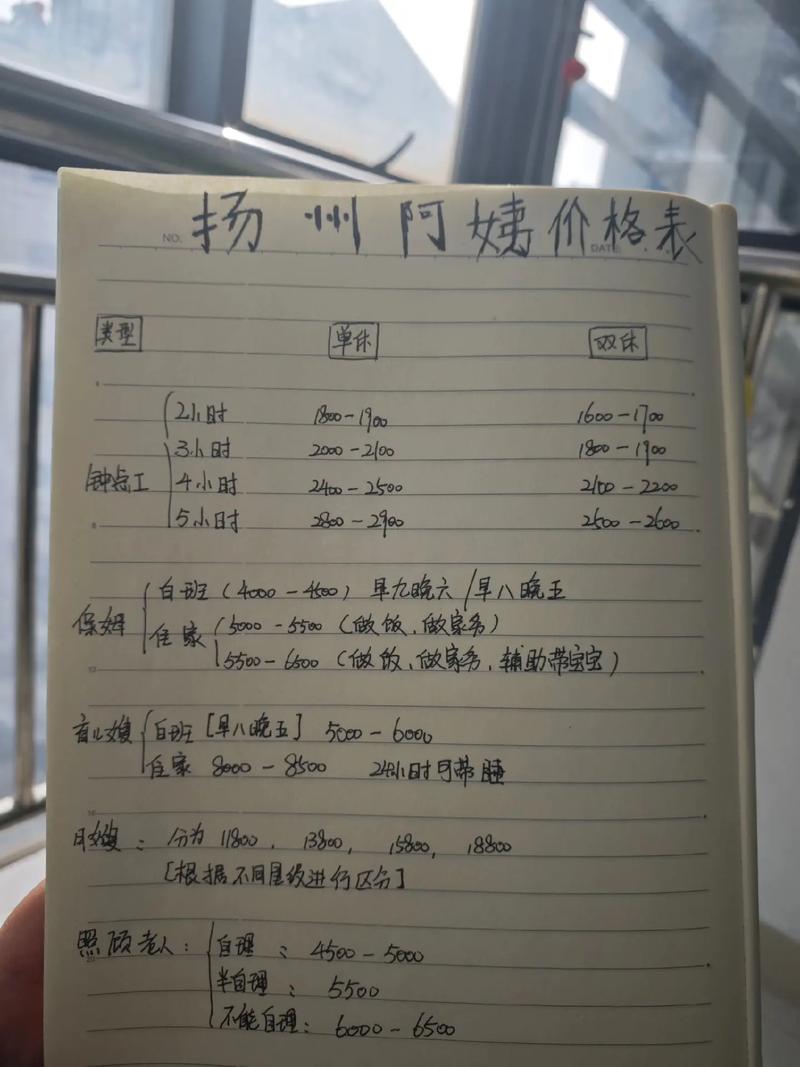 NO. 扬州阿姨价格表 DATE
类型 单休 双休
2小时 1800-1900 1600-1700
3小时 2000-2100 1800-1900
钟点工 4小时 2400-2500 2100-2200
5小时 2800-2900 2500-2600
白班(4000-4500)早九晚六/早八晚五
保姆 住家 5000-5500(做饭、做家务)
5500-6500(做饭、做家务、辅助带宝宝)
育儿嫂 白班[早八晚五] 5000-6000
住家 8000-8500 24小时可带睡
月嫂:分为11800、13800、15800、18800
[根据不同星级进行区分]
照顾老人:自理:4500-5000
半自理:5500
不能自理:6000-6500